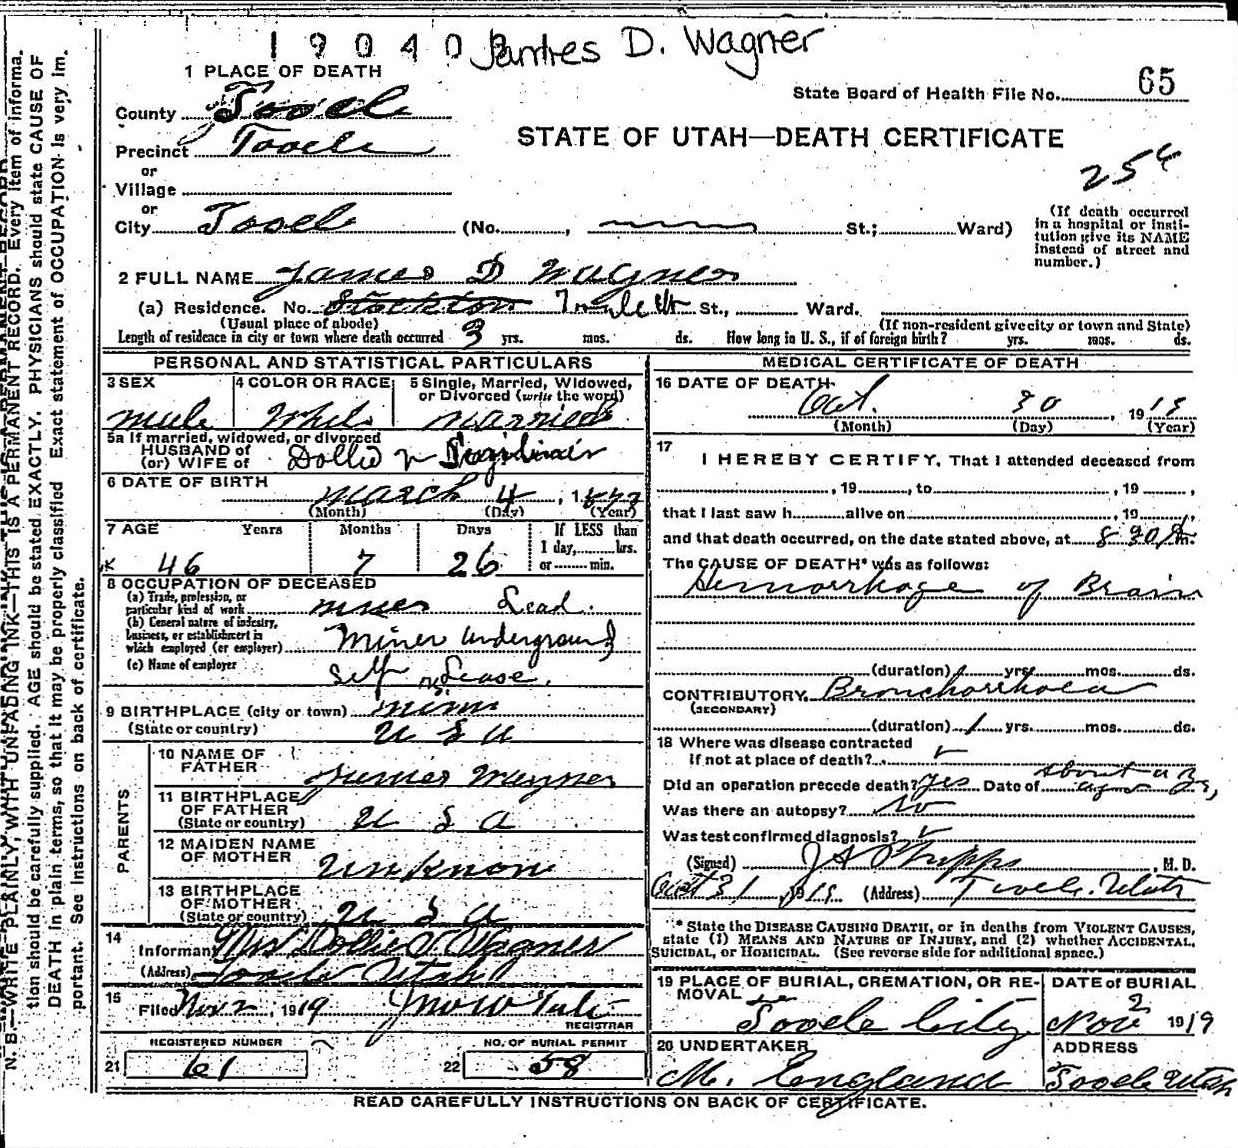 1 9 0 4 0 D. Wagner
1 PLACE OF DEATH
State Board of Health File No. 65
County Tooele
STATE OF UTAH—DEATH CERTIFICATE
Precinct Tooele
or
Village
or
City Tooele (No. , St.; Ward)
(If death occurred in a hospital or institution give its NAME instead of street and number.)
2 FULL NAME James D Wagner
(a) Residence. No. Stockton St., Ward.
(Usual place of abode) (If non-resident give city or town and State)
Length of residence in city or town where death occurred 3 yrs. mos. ds. How long in U. S., if of foreign birth? yrs. mos. ds.
PERSONAL AND STATISTICAL PARTICULARS
3 SEX 4 COLOR OR RACE 5 Single, Married, Widowed, or Divorced (write the word)
Male White Married
5a If married, widowed, or divorced
HUSBAND of
(or) WIFE of Dollie
6 DATE OF BIRTH March 4, 1873
(Month) (Day) (Year)
7 AGE Years Months Days If LESS than
1 day, hrs.
46 7 26 or min.
8 OCCUPATION OF DECEASED
(a) Trade, profession, or particular kind of work Miner Lead.
(b) General nature of industry, business, or establishment in which employed (or employer) Miner Underground
(c) Name of employer Self Lease.
9 BIRTHPLACE (city or town) Minn
(State or country) U S A
PARENTS
10 NAME OF FATHER Wagner
11 BIRTHPLACE OF FATHER (State or country) U S A
12 MAIDEN NAME OF MOTHER Unknown
13 BIRTHPLACE OF MOTHER (State or country) U S A
14 Informant Mrs Dollie V. Wagner
(Address) Tooele Utah
15 Filed Nov 2, 1919
REGISTRAR
REGISTERED NUMBER NO. OF BURIAL PERMIT
21 61 22 58
MEDICAL CERTIFICATE OF DEATH
16 DATE OF DEATH Oct. 30, 1919
(Month) (Day) (Year)
17 I HEREBY CERTIFY, That I attended deceased from
, 19 , to , 19 ,
that I last saw h alive on , 19 ,
and that death occurred, on the date stated above, at 8 30 m.
The CAUSE OF DEATH* was as follows:
Hemorrhage of Brain
(duration) yrs. mos. ds.
CONTRIBUTORY Bronchorrhoea
(SECONDARY)
(duration) 1 yrs. mos. ds.
18 Where was disease contracted
If not at place of death?
Did an operation precede death? Yes Date of about
Was there an autopsy? No
Was test confirmed diagnosis?
(Signed) J A Phipps, M. D.
Oct 31 1919 (Address) Tooele, Utah
* State the DISEASE CAUSING DEATH, or in deaths from VIOLENT CAUSES,
state (1) MEANS AND NATURE OF INJURY, and (2) whether ACCIDENTAL,
SUICIDAL, or HOMICIDAL. (See reverse side for additional space.)
19 PLACE OF BURIAL, CREMATION, OR REMOVAL DATE of BURIAL
Tooele City Nov 2 1919
20 UNDERTAKER ADDRESS
M. England Tooele Utah
READ CAREFULLY INSTRUCTIONS ON BACK OF CERTIFICATE.
N. B.—WRITE PLAINLY, WITH UNFADING INK—THIS IS A PERMANENT RECORD. Every item of informa-
tion should be carefully supplied. AGE should be stated EXACTLY. PHYSICIANS should state CAUSE OF
DEATH in plain terms, so that it may be properly classified. Exact statement of OCCUPATION is very im-
portant. See instructions on back of certificate.